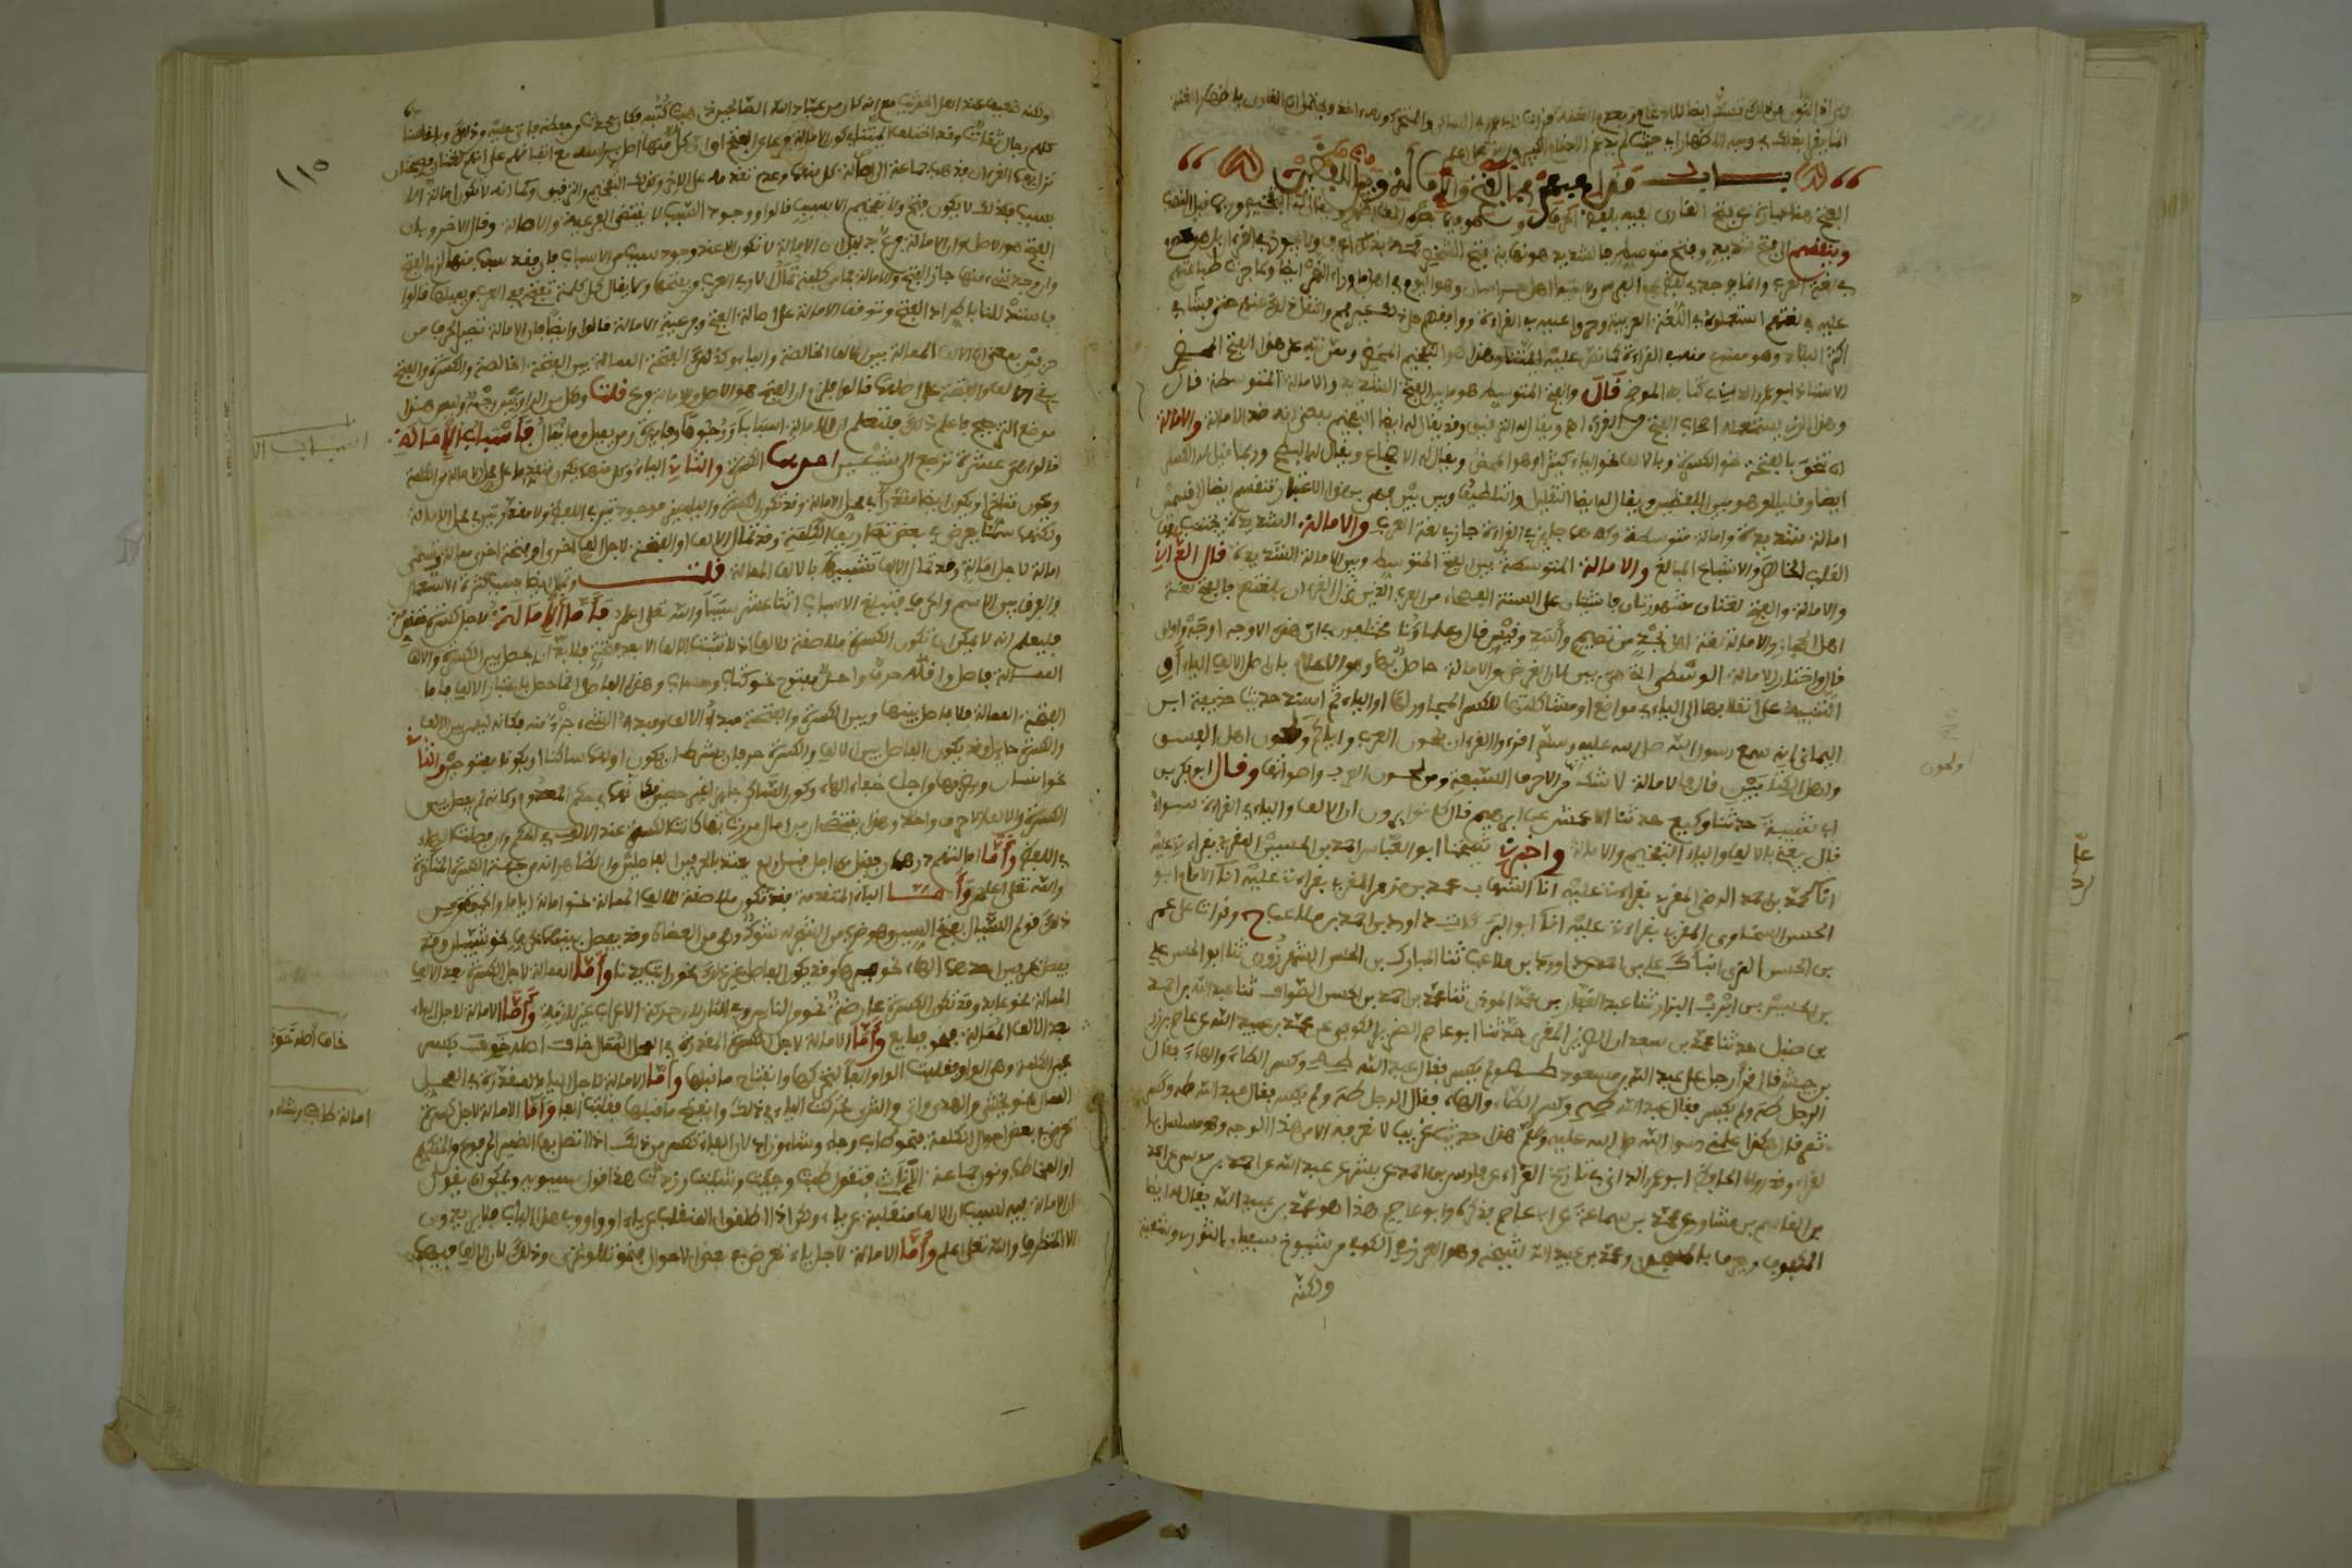 باب مذاهبهم في الفتح والإمالة وبين اللفظين
الفتح هنا عبارة عن فتح القارئ لفيه بلفظ الحرف وهو فيما بعده ألف أظهر ويقال له أيضا التفخيم وربما قيل له النصب
وينقسم إلى فتح شديد وفتح متوسط فالشديد هو نهاية فتح الشخص فمه بذلك الحرف ولا يجوز في القرآن بل هو معدوم
في لغة العرب وإنما يوجد في لفظ عجم الفرس ولا سيما أهل خراسان وهو اليوم في أهل ما وراء النهر أيضا ولما جرت طباعهم
عليه في لغتهم استعملوه في اللغة العربية وجروا عليه في القراءة ووافقهم على ذلك غيرهم وانتقل ذلك عنهم حتى فشا في
أكثر البلاد وهو ممنوع منه في القراءة كما نص عليه أئمتنا وهذا هو التفخيم المحض وممن نبه على هذا الفتح المحض
الأستاذ أبو عمرو الداني في كتابه الموضح قال والفتح المتوسط هو ما بين الفتح الشديد والإمالة المتوسطة قال
وهذا الذي يستعمله أصحاب الفتح من القراء اه ويقال له الترقيق وقد يقال له أيضا التفخيم بمعنى أنه ضد الإمالة والإمالة
أن تنحو بالفتحة نحو الكسرة وبالألف نحو الياء كثيرا وهو المحض ويقال له الإضجاع ويقال له البطح وربما قيل له الكسر
أيضا وقليلا وهو بين اللفظين ويقال له أيضا التقليل والتلطيف وبين بين فهي بهذا الاعتبار تنقسم أيضا إلى قسمين
إمالة شديدة وإمالة متوسطة وكلاهما جائز في القراءة جار في لغة العرب والإمالة الشديدة يجتنب معها
القلب الخالص والإشباع المبالغ والإمالة المتوسطة بين الفتح المتوسط وبين الإمالة الشديدة قال الداني
والإمالة والفتح لغتان مشهورتان فاشيتان على ألسنة الفصحاء من العرب الذين نزل القرآن بلغتهم فالفتح لغة
أهل الحجاز والإمالة لغة أهل نجد من تميم وأسد وقيس قال وعلماؤنا مختلفون في أي هذه الأوجه أوجه وأولى
قال واختار الإمالة الوسطى التي هي بين بين لأن الغرض من الإمالة حاصل بها وهو الإعلام بأن أصل الألف الياء أو
التنبيه على انقلابها إلى الياء في مواضع أو مشاكلتها للكسر المجاور لها أو الياء ثم أسند حديث حذيفة ابن
اليماني أنه سمع رسول الله صلى الله عليه وسلم اقرءوا القرآن بلحون العرب وإياكم ولحون أهل الفسق
وأهل الكتابين قال فالإمالة لا شك من الأحرف السبعة ومن لحون العرب وأصواتها وقال أبو بكر بن
أبي شيبة حدثنا وكيع حدثنا الأعمش عن إبراهيم قال كانوا يرون أن الألف والياء في القراءة سواء
قال يعني بالألف والياء التفخيم والإمالة وأخبرني شيخنا أبو العباس أحمد بن الحسين المقري بقراءتي عليه
أنا محمد بن أحمد الرقي المقري بقراءتي عليه أنا الشهاب محمد بن مزهر المقري بقراءتي عليه أنا الإمام أبو
الحسن السخاوي المقري بقراءتي عليه أنا أبو البركات داود بن أحمد بن ملاعب ح وقرأت على عمر
بن الحسن المزي أنبأك علي بن أحمد عن داود بن ملاعب ثنا المبارك بن الحسن الشهرزوري ثنا أبو الحسن علي
بن الحسين بن أيوب البزار ثنا عبد الغفار بن محمد المؤدب ثنا محمد بن أحمد بن الحسن الصواف ثنا عبد الله بن أحمد
بن حنبل حدثنا محمد بن سعدان الضرير المقري حدثنا أبو عاصم الضرير الكوفي عن محمد بن عبيد الله عن عاصم عن زر
بن حبيش قال قرأ رجل على عبد الله بن مسعود طه ولم يكسر فقال عبد الله طه وكسر الطاء والهاء فقال
الرجل طه ولم يكسر فقال عبد الله طه وكسر الطاء والهاء فقال الرجل طه ولم يكسر فقال عبد الله طه وكسر
ثم قال هكذا علمني رسول الله صلى الله عليه وسلم هذا حديث غريب لا نعرفه إلا من هذا الوجه وهو مسلسل بالـ
قراء وقد رواه الحافظ أبو عمرو الداني في تاريخ القراء عن فارس بن أحمد عن بشر بن عبد الله عن أحمد بن موسى عن أحمد
بن القاسم بن مساور عن محمد بن سماعة عن أبي عاصم فذكره وأبو عاصم هذا هو محمد بن عبيد الله يقال له أيضا
المكفوف ويعرف بالمسجدي ومحمد بن عبيد الله شيخه وهو العرزمي الكوفي من شيوخ سفيان الثوري وشعبة
ولكنه
١١٥
ولكنه ضعيف عند أهل الحديث مع أنه كان من عباد الله الصالحين ذهبت كتبه فكان يحدث من حفظه فأتي عليه من ذلك وباقي
كلهم رجال ثقات وقد اختلف أئمتنا في كون الإمالة فرعا عن الفتح أو أن كلا منهما أصل برأسه مع اتفاقهم على أنهما لغتان فصيحتان
نزل بهما القرآن فذهب جماعة إلى أصالة كل منهما وعدم تقدمه على الآخر وكذلك التفخيم والترقيق وكما أنه لا تكون إمالة إلا
بسبب فكذلك لا يكون فتح ولا تفخيم إلا بسبب قالوا ووجود السبب لا يقتضي الفرعية والأصالة وقال آخرون إن
الفتح هو الأصل وإن الإمالة فرع بدليل أن الإمالة لا تكون إلا عند وجود سبب من الأسباب فإن فقد سبب منها لزم الفتح
وإن وجد شيء منها جاز الفتح والإمالة فما من كلمة تمال إلا وفي العرب من يفتحها ولا يقال كل كلمة تفتح ففي العرب من يميلها قالوا
فاستدللنا باطراد الفتح وتوقف الإمالة على أصالة الفتح وفرعية الإمالة قالوا وأيضا فإن الإمالة تصير الحرف بين
حرفين بمعنى أن الألف الممالة بين الألف الخالصة والياء وكذلك الفتحة الممالة بين الفتحة الخالصة والكسرة والفتح
يبقي الألف والفتحة على أصلهما قالوا فلزم أن الفتح هو الأصل والإمالة فرع قلت ولكل من الرأيين وجه وليس هذا
موضع الترجيح فإذا علم ذلك فليعلم أن للإمالة أسبابا ووجوها وفائدة ومن يميل وما يمال فأسباب الإمالة
أسباب الا
قالوا هي عشرة ترجع إلى شيئين أحدهما الكسرة والثاني الياء وكل منهما يكون متقدما على محل الإمالة من الكلمة
ويكون متأخرا ويكون أيضا مقدرا في محل الإمالة وقد تكون الكسرة والياء غير موجودتين في اللفظ ولا مقدرتين في محل الإمالة
ولكنهما مما يعرض في بعض تصاريف الكلمة وقد تمال الألف أو الفتحة لأجل ألف أخرى أو فتحة أخرى ممالة وتسمى
إمالة لأجل إمالة وقد تمال الألف تشبيها بالألف الممالة قلت وتمال أيضا بسبب كثرة الاستعمال
وللفرق بين الاسم والحرف فتبلغ الأسباب اثني عشر سببا والله تعالى أعلم فأما الإمالة لأجل كسرة متقدمة
فليعلم أنه لا يمكن أن تكون الكسرة ملاصقة للألف إذ لا تثبت الألف إلا بعد فتحة فلا بد أن يحصل بين الكسرة والألف
الممالة فاصل وأقله حرف واحد مفتوح نحو كتاب وحساب وهذا الفاصل إنما حصل باعتبار الألف فأما
الفتحة الممالة فلا فاصل بينها وبين الكسرة والفتحة مبدأ الألف ومبدأ الشيء جزء منه فكأنه ليس بين الألف
والكسرة حائل وقد يكون الفاصل بين الألف والكسرة حرفين بشرط أن يكون أولهما ساكنا أو يكونا مفتوحين والثاني هاء
نحو إنسان ويضربها من أجل خفاء الهاء وكون الساكن حاجزا غير حصين فكأنهما في حكم المعدوم وكأنه لم يفصل بين
الكسرة والألف إلا حرف واحد وهذا يقتضي أن من أمال مررت بها كانت الكسرة عند الألف في الحكم وإن فصلت الهاء
في اللفظ وأما إمالتهم درهمان فقيل من أجل الكسرة قبل ولم يعتد بالحرفين الفاصلين والظاهر أنه من جهة الكسرة المتأخرة
والله تعالى أعلم وأما الياء المتقدمة فقد تكون ملاصقة للألف الممالة نحو إمالة أياما والحياة ومن
ذلك قولهم السيال بفتح السين وهو ضرب من الشجر له شوك وهي من العضاه وقد يفصل بينهما بحرف نحو شيبان وقد
يفصل بحرفين أحدهما الهاء نحو يدها وقد يكون الفاصل غير ذلك نحو رأيت يدنا وأما الممالة لأجل الكسرة بعد الألف
الممالة نحو عابد وقد تكون الكسرة عارضة نحو من الناس وفي النار لأن حركة الإعراب غير لازمة وأما الإمالة لأجل الياء
بعد الألف الممالة فنحو مبايع وأما الإمالة لأجل الكسرة المقدرة في المحل الممال نحو خاف أصله خوف بكسر
خاف أصله خوف
عين الكلمة وهي الواو فقلبت الواو ألفا لتحركها وانفتاح ما قبلها وأما الإمالة لأجل الياء المقدرة في المحل
الممال نحو يخشى والهدى وأتى والثرى تحركت الياء في ذلك وانفتح ما قبلها فقلبت ألفا وأما الإمالة لأجل كسرة
امالة طاب وشاء و
تعرض في بعض أحوال الكلمة فنحو طاب وجاء وشاء وزاد لأن الفاء تكسر من ذلك إذا اتصل بها الضمير المرفوع من المتكلم
أو المخاطب ونون جماعة الإناث فتقول طبت وجئت وشئت وزدت هذا قول سيبويه ويمكن أن يقول
إن الإمالة فيه بسبب أن الألف منقلبة عن ياء ولكن إذا أطلقوا المنقلب عن ياء أو واو في هذا الباب فلا يريدون
إلا المتطرف والله تعالى أعلم وأما الإمالة لأجل ياء تعرض في بعض الأحوال فنحو تلا وغزا وذلك لأن الألف فيهما